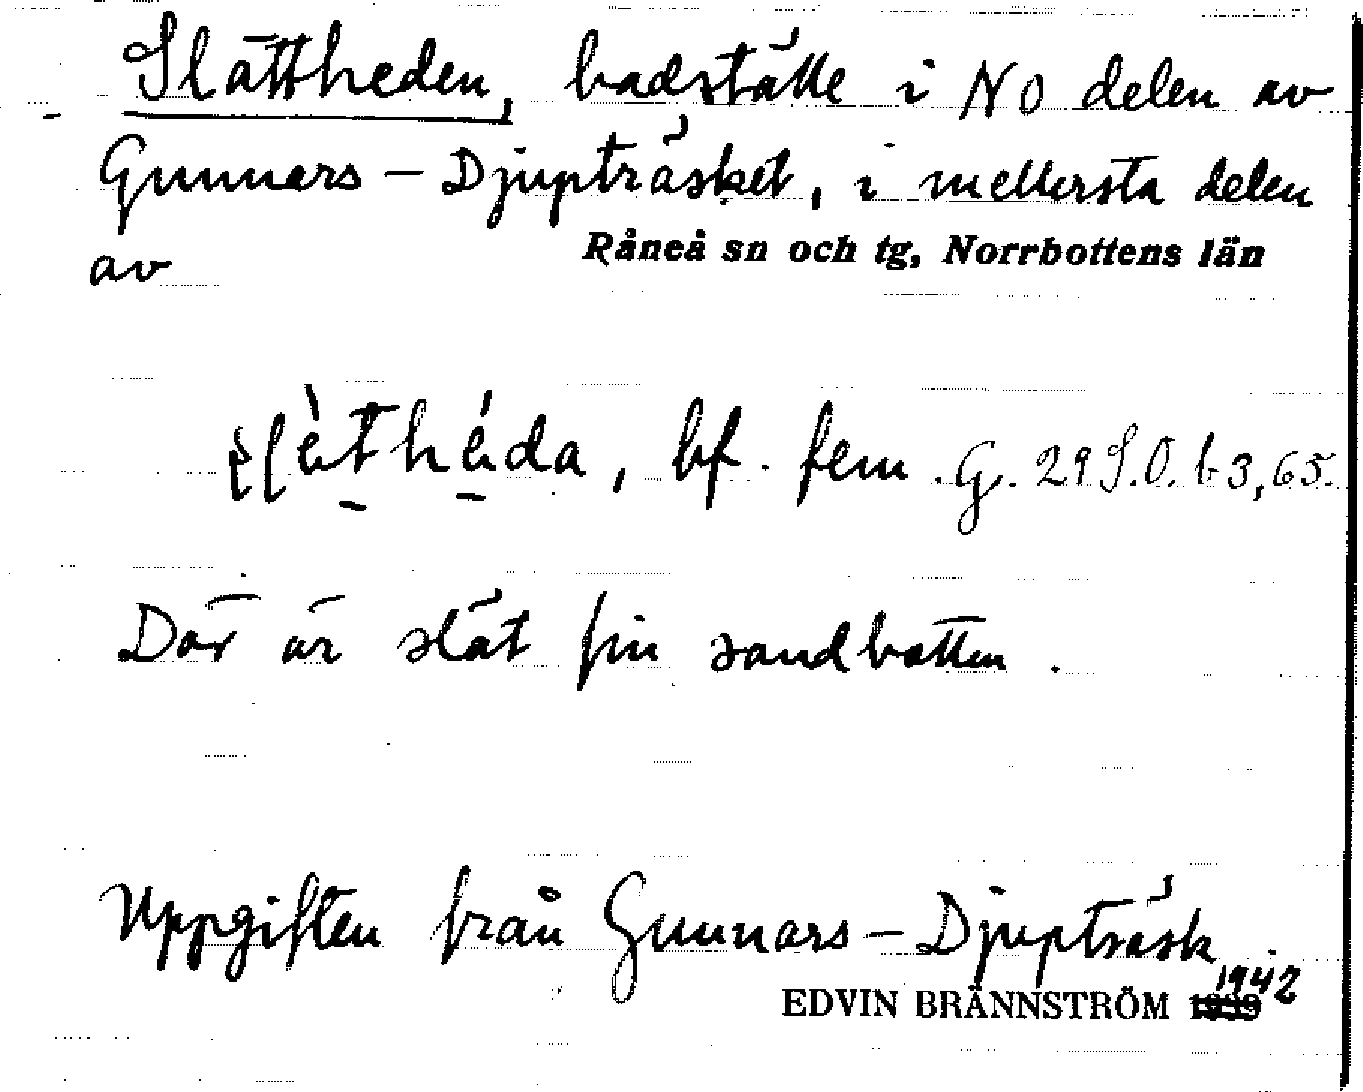 Slättheden, badställe i NO delen av
Gunnars-Djupträsket, i mellersta delen
av Råneå sn och tg, Norrbottens län
bf. fem. G. 29 S.O. b 3,65.
Där är slät fin sandbotten.
Uppgiften från Gunnars-Djupträsk.
EDVIN BRÄNNSTRÖM 1942